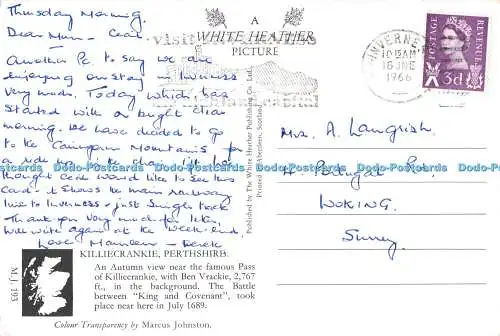 Thursday Morning.
Dear Mum - Cear.
Another Pc. to say we are
enjoying our stay in Inverness
very much. Today which has
started with a bright clear
morning. We have decided to go
to the Cairngorm Mountains for
a ride up the chair lift.
thought Cear would like to see this
Card - it shows the main Railway
line to Inverness - just Single track
Thank you very much for letter,
will write again at the week-end.
Love Maureen - Derek
A
WHITE HEATHER
PICTURE
Published by The White Heather Publishing Co. Ltd.
Printed in Aberdeen, Scotland
INVERNESS
10 15AM
16 JNE
1966
POSTAGE
REVENUE
3d
Mrs. A. Langrish,
WOKING.
Surrey.
Dodo-Postcards Dodo-Postcards Dodo-Postcards Dodo-Postcards Dodo-Postcards
M.J. 193
KILLIECRANKIE, PERTHSHIRE.
An Autumn view near the famous Pass
of Killiecrankie, with Ben Vrackie, 2,767
ft., in the background. The Battle
between "King and Covenant", took
place near here in July 1689.
Colour Transparency by Marcus Johnston.